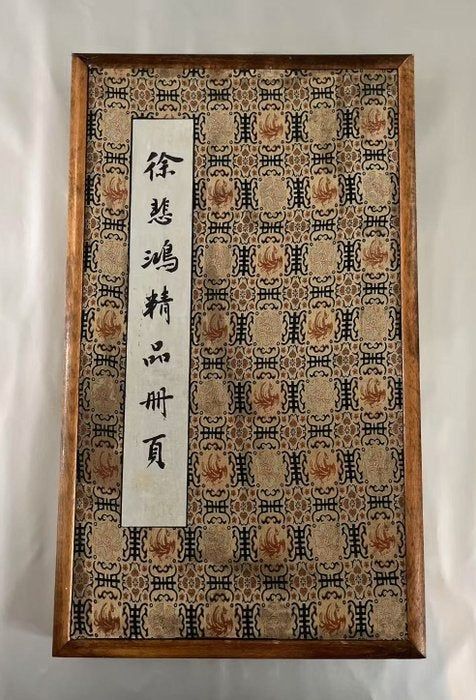 徐悲鴻精品册頁